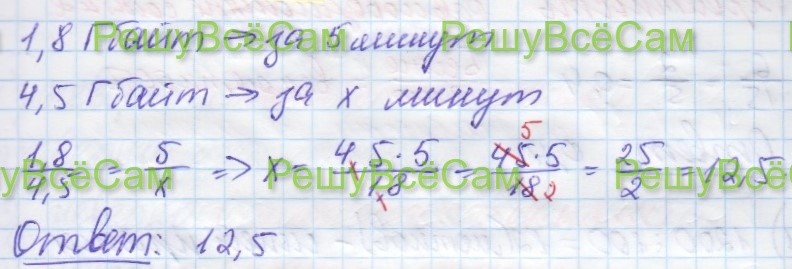 1,8 Гбайт → за 5 минут
4,5 Гбайт → за x минут
1,8/4,5 = 5/x => x = 4,5·5/1,8 = 45·5/18 = 25/2 = 12,5
5
2
Ответ: 12,5
РешуВсёСам РешуВсёСам
РешуВсёСам РешуВсёСам РешуВсёСам